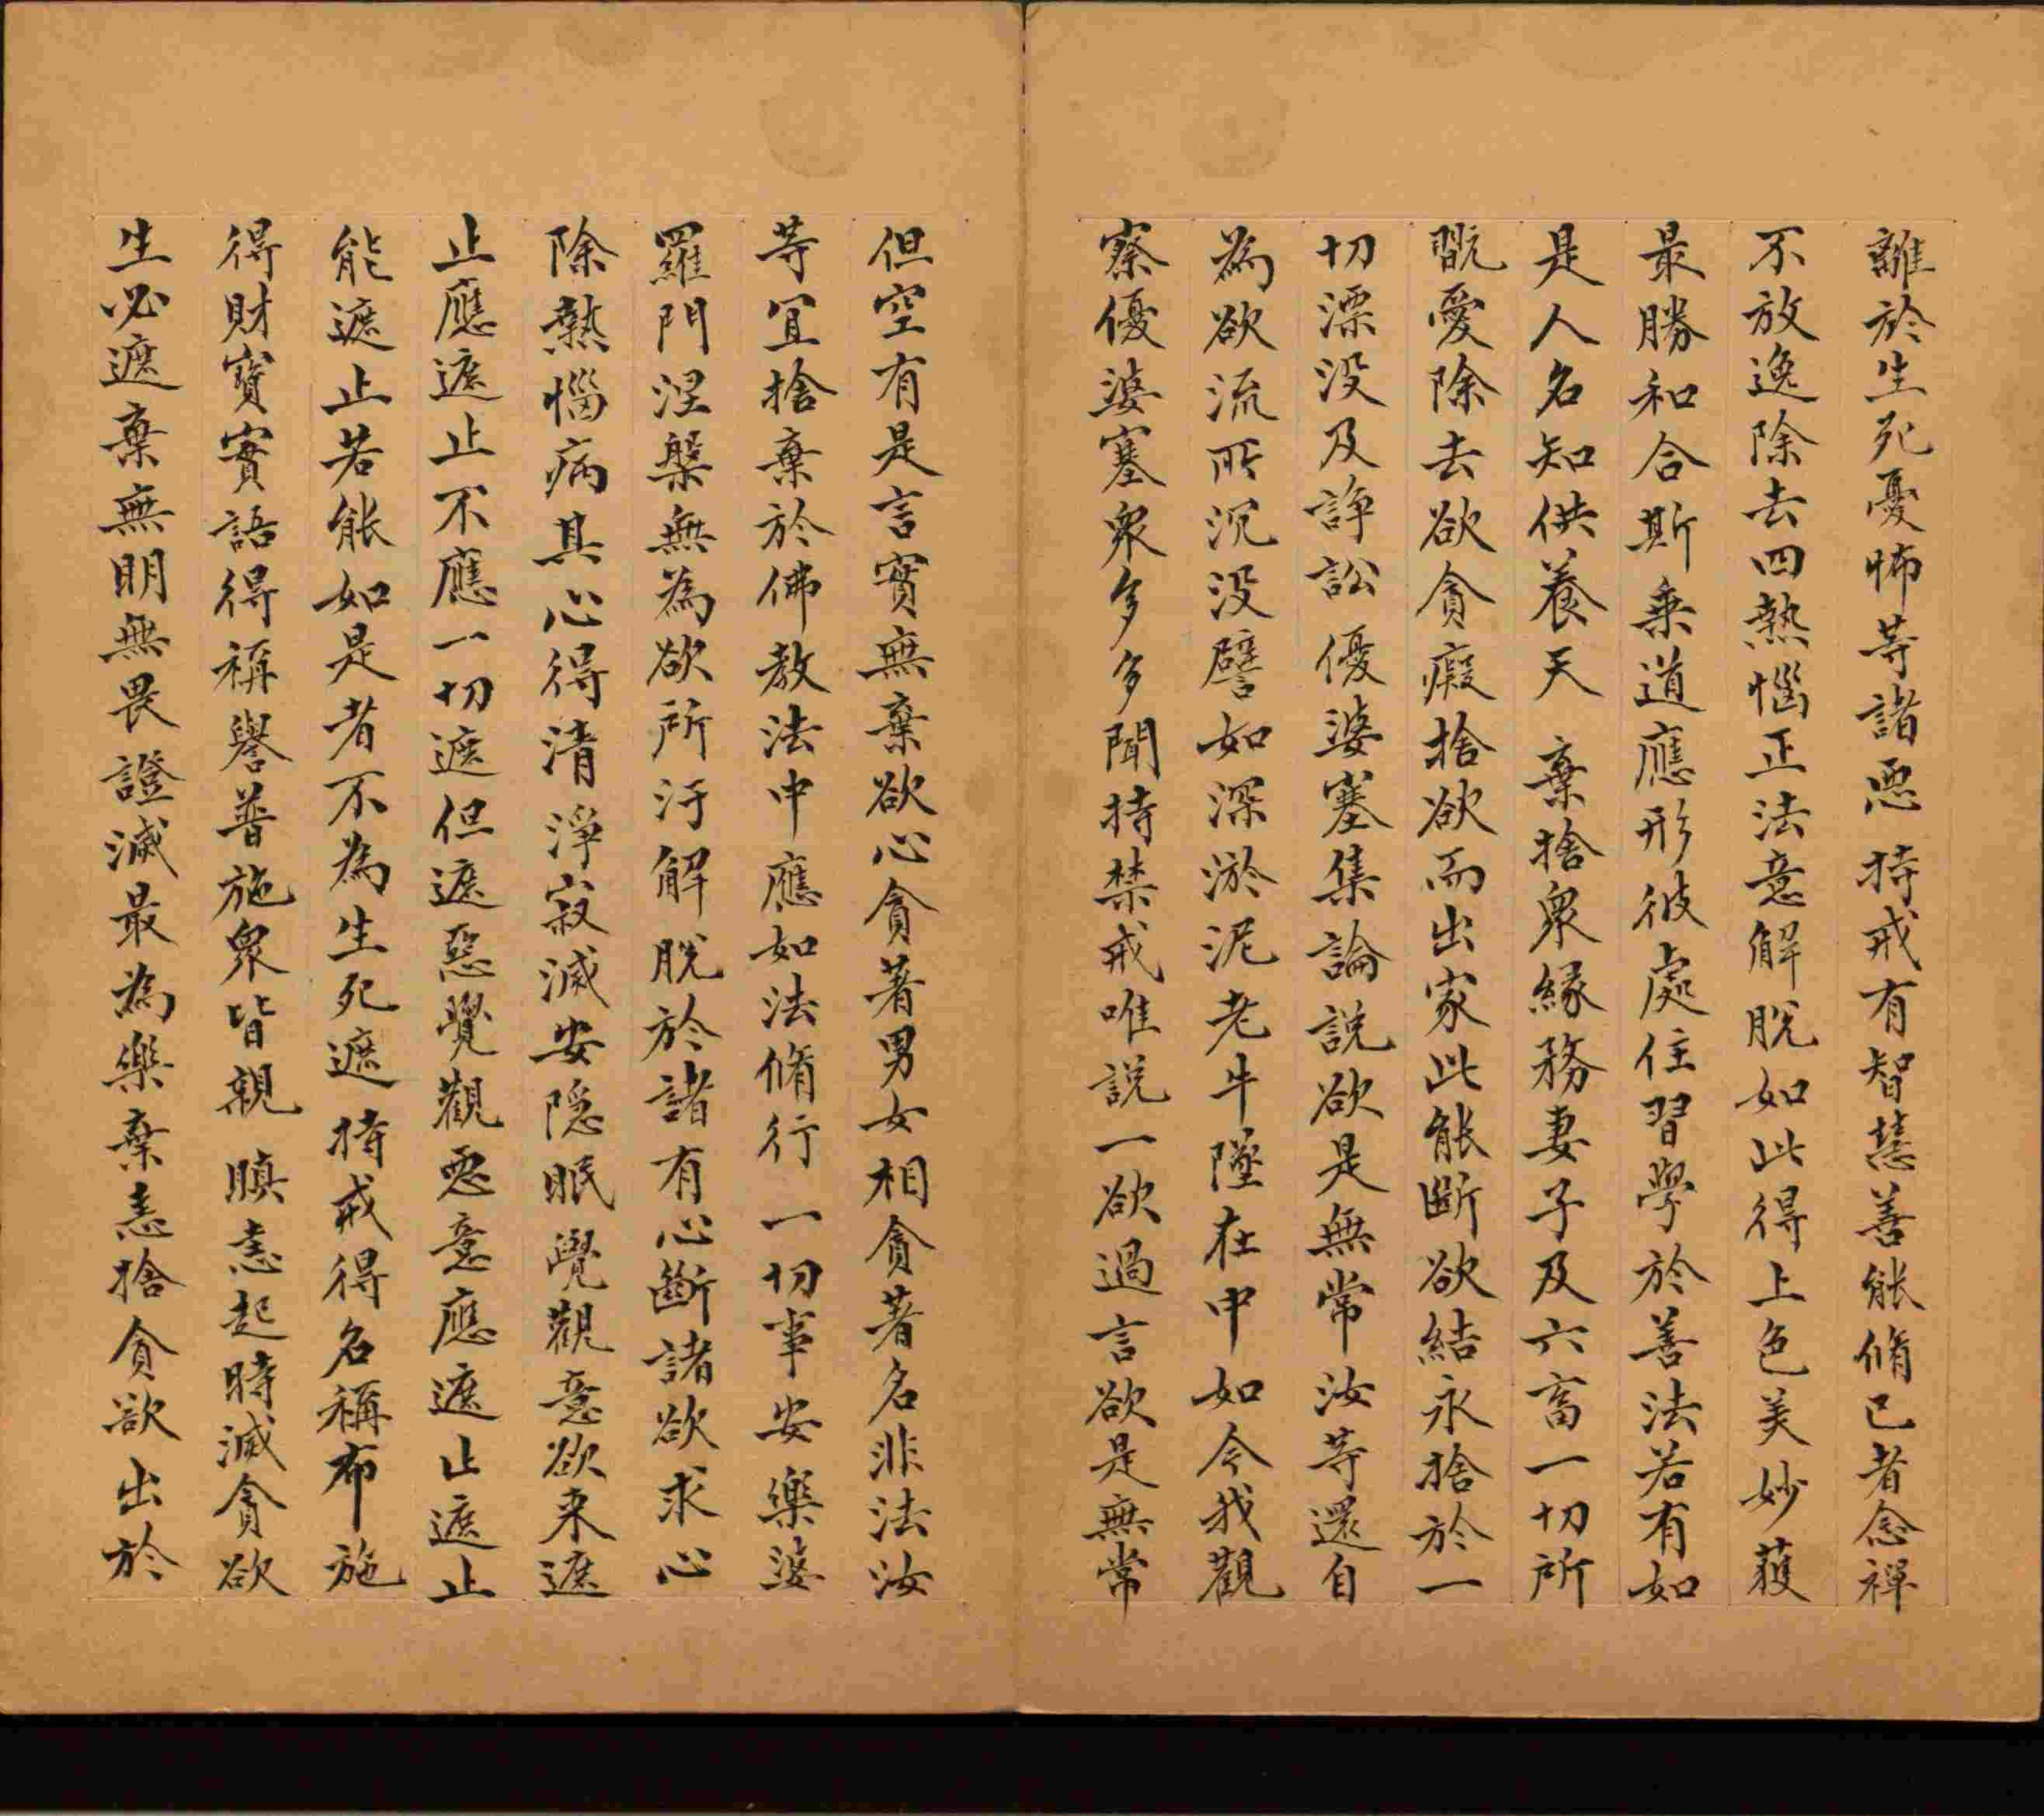 離於生死憂怖等諸惡 持戒有智慧善能脩已者念禪
不放逸除去四熱惱正法意解脫如此得上色美妙獲
最勝和合斯乘道應形彼處住習學於善法若有如
是人名知供養天 棄捨衆緣務妻子及六畜一切所
翫愛除去欲貪癡捨欲而出家此能斷欲結永捨於一
切漂没及諍訟 優婆塞集論說欲是無常汝等還自
為欲流所沉没譬如深淤泥老牛墜在中如今我觀
察優婆塞衆多多聞持禁戒唯說一欲過言欲是無常
但空有是言實無棄欲心貪著男女相貪著名非法汝
等宜捨棄於佛教法中應如法脩行 一切事安樂婆
羅門涅槃無為欲所汙解脫於諸有心斷諸欲求心
除熱惱病其心得清淨寂滅安隱眠 覺觀意欲来遮
止應遮止不應一切遮但遮惡覺觀惡意應遮止遮止
能遮止若能如是者不為生死遮 持戒得名稱布施
得財寳實語得稱譽普施衆皆親 瞋恚起時滅貪欲
生必遮棄無明無畏證滅最為樂棄恚捨貪欲出於